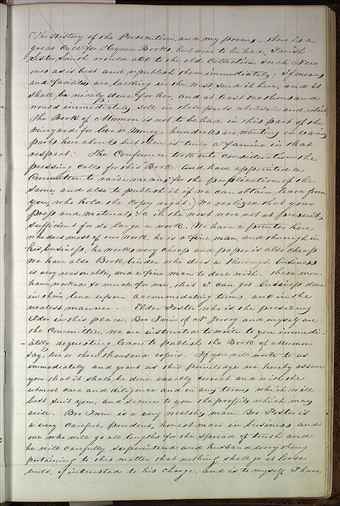 "The History of the Persecution, and my poems. there is a
great call for Hymn Books, but none to be had. I wish
Sister Smith would add to the old Collection such New
ones as is best and republish them immediately. If means
and facilities are lacking in the West send it here, and it
shall be nicely done for her, and at least one thousand
would immediately sell in these parts wholesale and retail
The Book of Mormon is not to be had in this part of the
vineyard for love or money, hundreds are wanting in
parts here abouts but there is truly a famine in that
respect. The Conference took into consideration the
pressing calls for this Book, and have appointed a
Committee to raise means for the publication of the
same, and also to publish it if we can obtain leave from
you, who hold the Copy right. We realized that your
press and materials &c in the West were not at present
sufficient for so large a work. We have a printer here
who does most of our work, he is a fine man, and thorough in
his business, he works very cheap and paper is also cheap
We have also Book binder who does a thorough business
is very reasonable, and a fine man to deal with. these men
have worked so much for me, that I can get business done
in their line upon accommodating terms, and in the
neatest manner. Elder Foster, who is the presiding
Elder in this place, Bro Ivins of N. Jersey and myself are
the Committee, we are instructed to write to you immedi
-ately requesting leave to publish the Book of Mormon
say, two or three thousand copies. If you will write to us
immediately and grant us this priviledge we hereby assure
you that it shall be done exactly correct and with the
utmost care and diligence and on any terms which will
best suit you, and secure to you the profits which may
arise. Bro Ivins is a very wealthy man. Bro Foster is
a very careful, prudent, honest man in business and
one who will go all lengths for the spread of truth and
he will carefully superintend and husband every thing
pertaining to this matter that nothing shall go at loose
ends, if intrusted to his charge, and as to myself I have